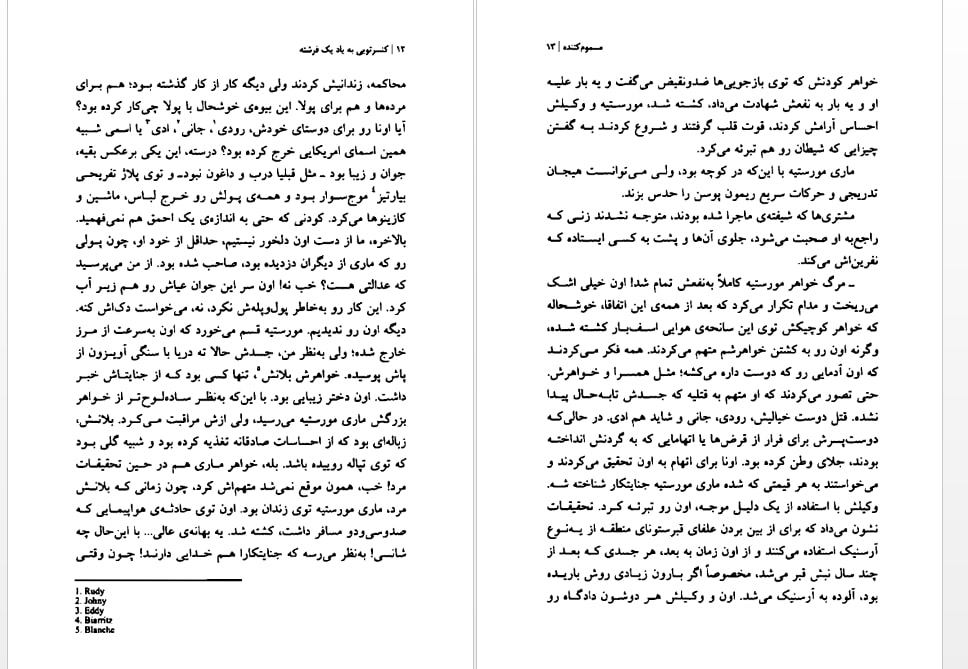 ۱۲ | کنسرتویی به یاد یک فرشته
محاکمه، زندانیش کردند ولی دیگه کار از کار گذشته بود؛ هم برای
مرده‌ها و هم برای پولا. این بیوه‌ی خوشحال با پولا چی‌کار کرده بود؟
آیا اونا رو برای دوستای خودش، رودی۱، جانی۲، ادی۳ یا اسمی شبیه
همین اسمای امریکایی خرج کرده بود؟ درسته، این یکی برعکس بقیه،
جوان و زیبا بود ـ مثل قبلیا درب و داغون نبودـ و توی پلاژ تفریحی
بیارتیز۴ موج‌سوار بود و همه‌ی پولش رو خرج لباس، ماشین و
کازینوها می‌کرد. کودنی که حتی به اندازه‌ی یک احمق هم نمی‌فهمید.
بالاخره، ما از دست اون دلخور نیستیم، حداقل از خود او، چون پولی
رو که ماری از دیگران دزدیده بود، صاحب شده بود. از من می‌پرسید
که عدالتی هست؟ خب نه! اون سر این جوان عیاش رو هم زیر آب
کرد. این کار رو به‌خاطر پول‌وپله‌ش نکرد، نه، می‌خواست دک‌اش کنه.
دیگه اون رو ندیدیم. مورستیه قسم می‌خورد که اون به‌سرعت از مرز
خارج شده؛ ولی به‌نظر من، جسدش حالا ته دریا با سنگی آویزون از
پاش پوسیده. خواهرش بلانش۵، تنها کسی بود که از جنایتاش خبر
داشت. اون دختر زیبایی بود. با این‌که به‌نظر ساده‌لوح‌تر از خواهر
بزرگش ماری مورستیه می‌رسید، ولی ازش مراقبت می‌کرد. بلانش،
زباله‌ای بود که از احساسات صادقانه تغذیه کرده بود و شبیه گلی بود
که توی تپاله روییده باشد. بله، خواهر ماری هم در حین تحقیقات
مرد! خب، همون موقع نمی‌شد متهم‌اش کرد، چون زمانی که بلانش
مرد، ماری مورستیه توی زندان بود. اون توی حادثه‌ی هواپیمایی که
صدوسی‌ودو مسافر داشت، کشته شد. یه بهانه‌ی عالی... با این‌حال چه
شانسی! به‌نظر می‌رسه که جنایتکارا هم خدایی دارند! چون وقتی
1. Rudy
2. Johny
3. Eddy
4. Biarritz
5. Blanche
مسموم‌کننده | ۱۳
خواهر کودنش که توی بازجویی‌ها ضدونقیض می‌گفت و یه بار علیه
او و یه بار به نفعش شهادت می‌داد، کشته شد، مورستیه و وکیلش
احساس آرامش کردند، قوت قلب گرفتند و شروع کردند به گفتن
چیزایی که شیطان رو هم تبرئه می‌کرد.
ماری مورستیه با این‌که در کوچه بود، ولی می‌توانست هیجان
تدریجی و حرکات سریع ریمون پوسن را حدس بزند.
مشتری‌ها که شیفته‌ی ماجرا شده بودند، متوجه نشدند زنی که
راجع‌به او صحبت می‌شود، جلوی آن‌ها و پشت به کسی ایستاده که
نفرین‌اش می‌کند.
ـ مرگ خواهر مورستیه کاملاً به‌نفعش تمام شد! اون خیلی اشک
می‌ریخت و مدام تکرار می‌کرد که بعد از همه‌ی این اتفاقا، خوشحاله
که خواهر کوچیکش توی این سانحه‌ی هوایی اسف‌بار کشته شده،
وگرنه اون رو به کشتن خواهرشم متهم می‌کردند. همه فکر می‌کردند
که اون آدمایی رو که دوست داره می‌کشه؛ مثل همسرا و خواهرش.
حتی تصور می‌کردند که او متهم به قتلیه که جسدش تابه‌حال پیدا
نشده. قتل دوست خیالیش، رودی، جانی و شاید هم ادی. در حالی‌که
دوست‌پسرش برای فرار از قرض‌ها یا اتهامایی که به گردنش انداخته
بودند، جلای وطن کرده بود. اونا برای اتهام به اون تحقیق می‌کردند و
می‌خواستند به هر قیمتی که شده ماری مورستیه جنایتکار شناخته شه.
وکیلش با استفاده از یک دلیل موجه، اون رو تبرئه کرد. تحقیقات
نشون می‌داد که برای از بین بردن علفای قبرستونای منطقه از یه‌نوع
آرسنیک استفاده می‌کنند و از اون زمان به بعد، هر جسدی که بعد از
چند سال نبش قبر می‌شد، مخصوصاً اگر بارون زیادی روش باریده
بود، آلوده به آرسنیک می‌شد. اون و وکیلش هر دوشون دادگاه رو